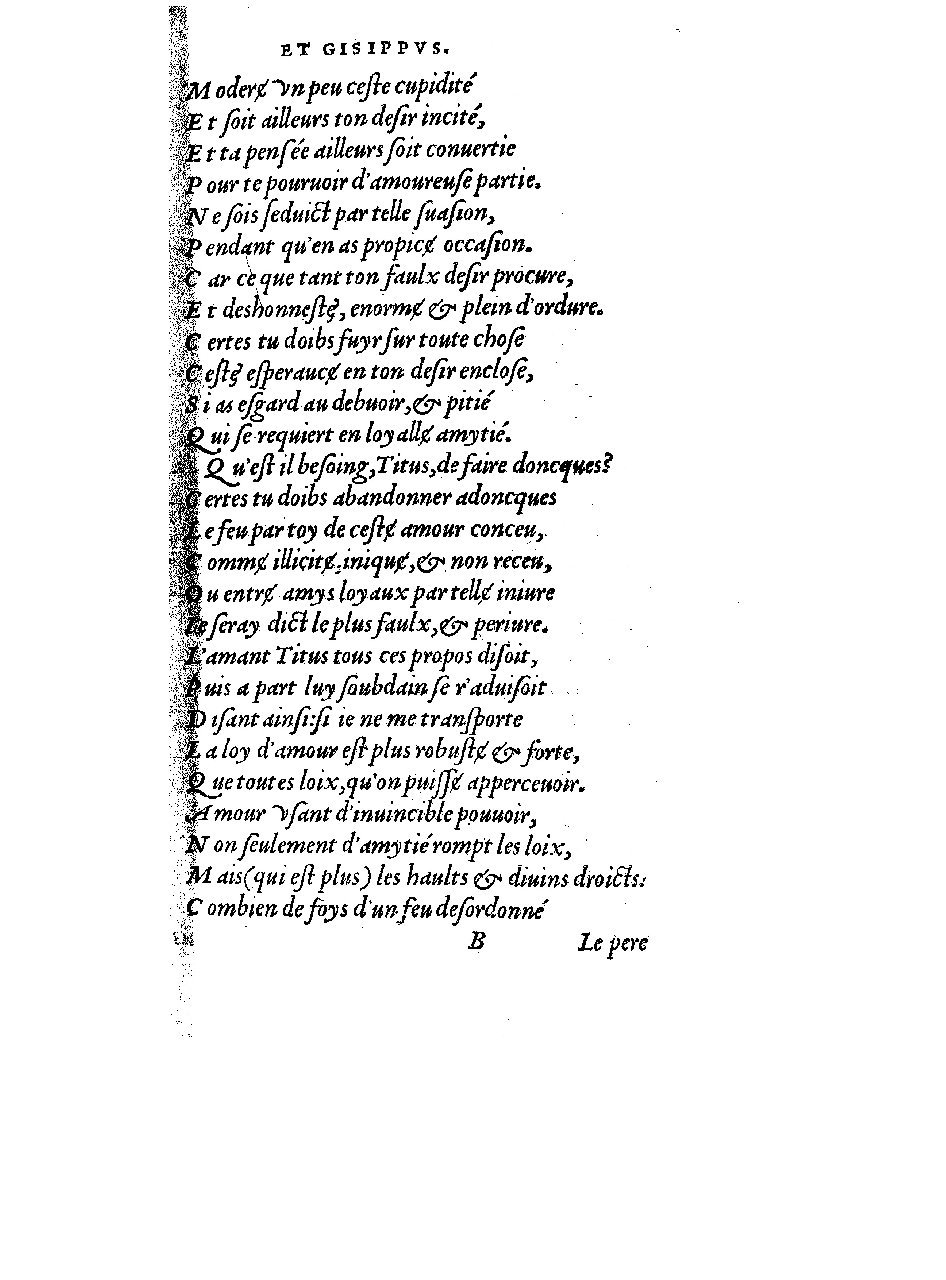 ET GISIPPVS.
Moderɇ vn peu ceſte cupidité
Et ſoit ailleurs ton deſir incité,
Et ta penſée ailleurs ſoit conuertie
Pour te pouruoir d'amoureuſe partie.
Ne ſois ſeduict par telle ſuaſion,
Pendant qu'en as propicɇ occaſion.
Car ce que tant ton faulx deſir procure,
Et deshonneſtɇ, enormɇ & plein d'ordure.
Certes tu doibs fuyr ſur toute choſe
Ceſtɇ eſperaucɇ en ton deſir encloſe,
Si as eſgard au debuoir, & pitié
Qui ſe requiert en loyallɇ amytié.
Qu'eſt il beſoing, Titus, de faire doncques?
Certes tu doibs abandonner adoncques
Le feu par toy de ceſtɇ amour conceu,
Commɇ illicitɇ, iniquɇ, & non receu,
Ou entrɇ amys loyaux par tellɇ iniure
Le ſeray dict le plus faulx, & periure.
L'amant Titus tous ces propos diſoit,
Puis a part luy ſoubdain ſe r'aduiſoit
Diſant ainſi: ſi ie ne me tranſporte
La loy d'amour eſt plus robuſtɇ & forte,
Que toutes loix, qu'on puiſſɇ apperceuoir.
Amour vſant d'inuincible pouuoir,
Non ſeulement d'amytié rompt les loix,
Mais (qui eſt plus) les haults & diuins droicts:
Combien de foys d'un feu deſordonné
B Le pere